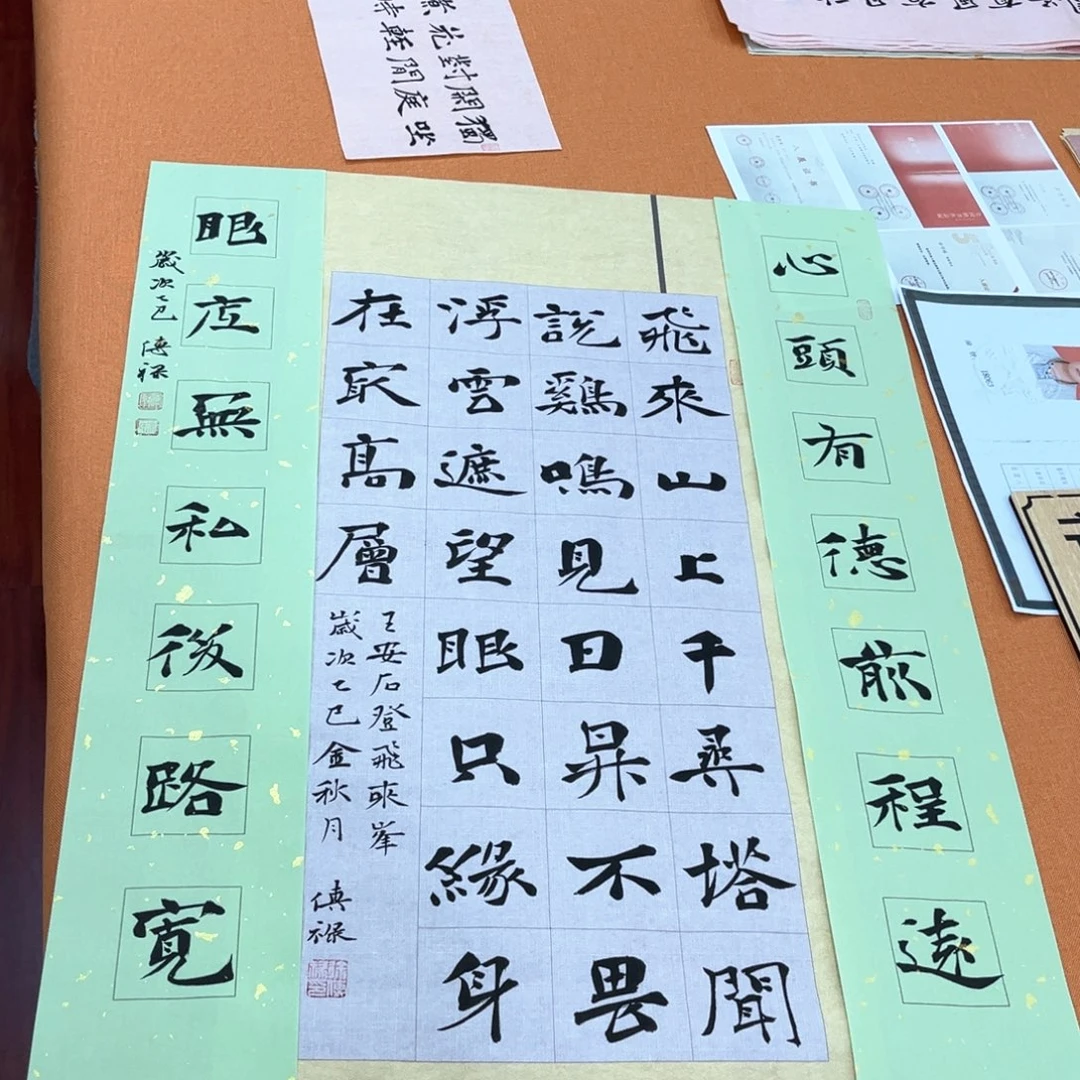 心頭有德前程遠
飛來山上千尋塔聞
說鷄鳴見日昇不畏
浮雲遮望眼只緣身
在最高層
王安石登飛來峯
歲次乙巳金秋月
眼底無私後路寬
歲次乙巳
花對開獨
輕閒庭坐